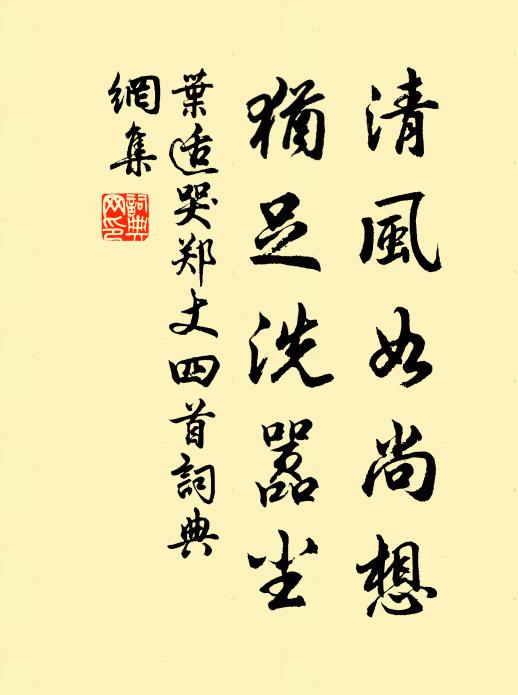 清風如尚想
猶足洗嚣尘
葉适哭郑丈四首詞典
網集
詞典
网印